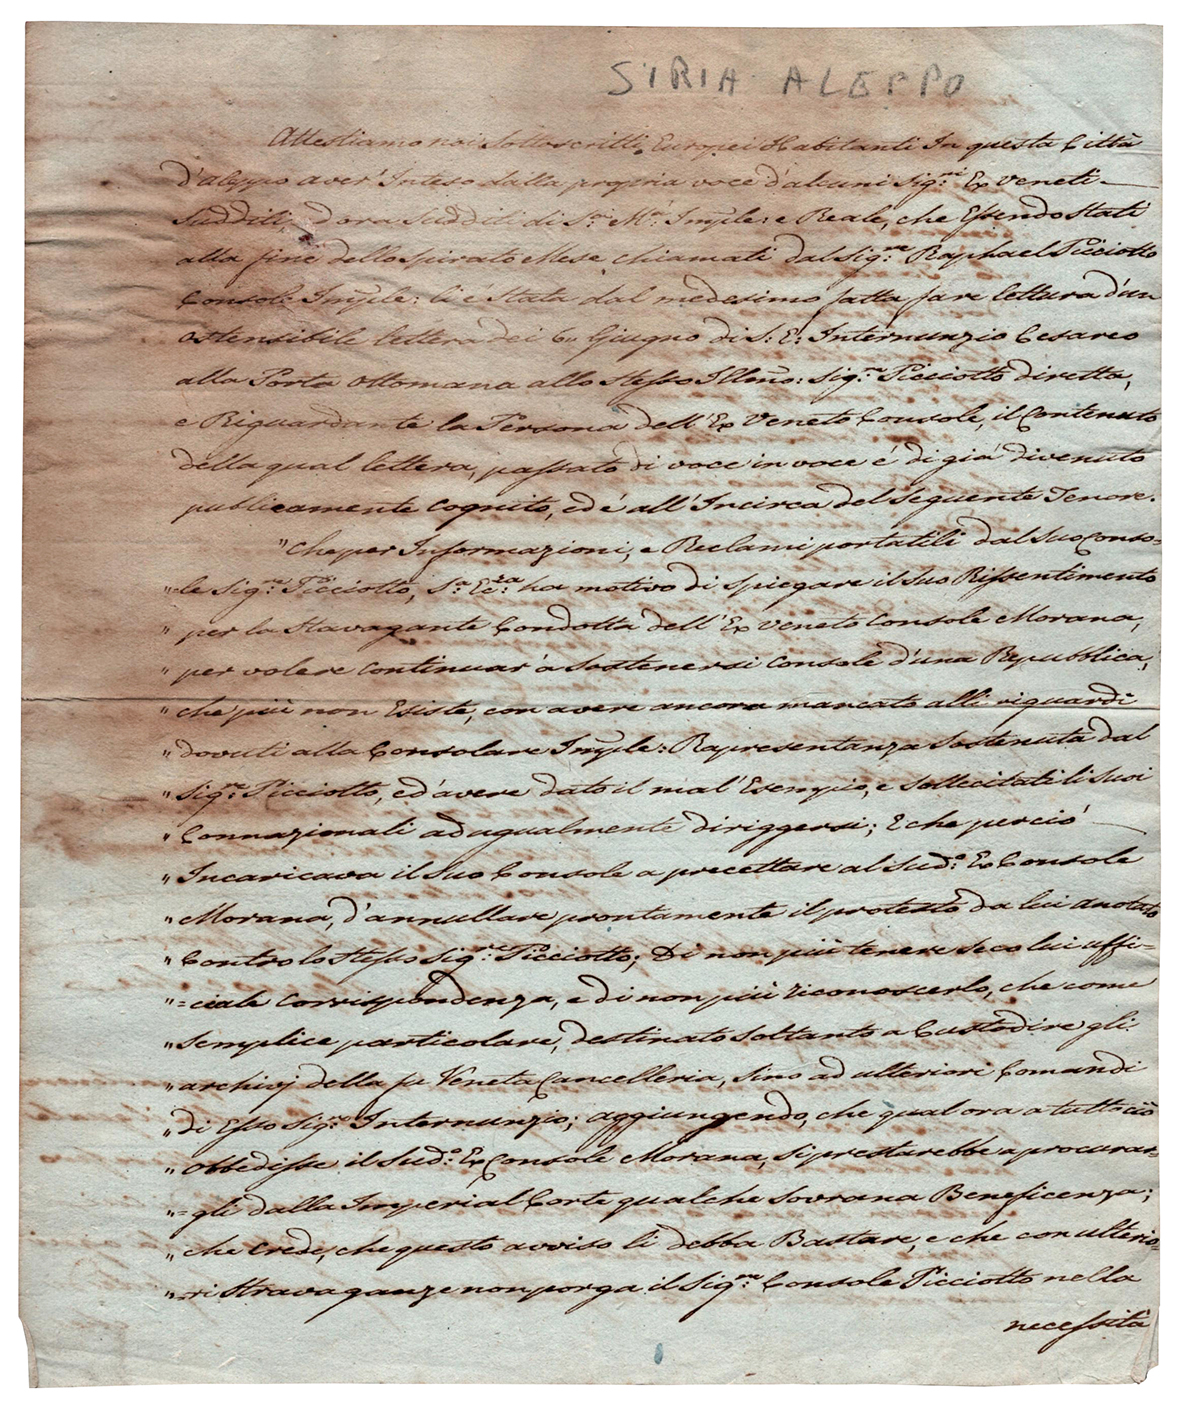 SIRIA ALEPPO
Attestiamo noi sottoscritti Europei Habitanti In questa Città
d'aleppo aver' Inteso dalla propria voce d'alcuni Sig:ri Ex Veneti
Sudditi, d'ora Sudditi di S: M: Imp̃le: e Reale, che Essendo Stati
alla fine dello Spirato Mese chiamati dal Sig:re Raphael Picciotto
Console Imp̃le: li é Stata dal medesimo fatta fare lettura d'un
ostensibile lettera dei 6,, Giugno di S: E: Internunzio Cesareo
alla Porta Ottomana allo Stesso Illm̃o: Sig:re Picciotto diretta,
e Riguardante la Persona dell' Ex Veneto Console, il Contenuto
della qual lettera, passato di voce in voce é di giá divenuto
publicamente Cognito, ed é all' Incirca del Seguente Tenore.
" Che per Informazioni, e Reclami portatili dal Suo Conso=
" le Sig:re Picciotto, S:a Ec:za ha motivo di Spiegare il Suo Rissentimento
" per la Stavagante Condotta dell' Ex Veneto Console Morana,
" per volere continuar' a Sostenersi Console d'una Repubblica,
" che piú non Esiste, con avere ancora mancato alli riguardi
" dovuti alla Consolare Imp̃le: Rapresentanza Sostenuta dal
" Sig:re Picciotto, ed avere dato il mal' Esempio, e Sollecitati li Suoi
" Connazionali ad ugualmente diriggersi; E che perció
" Incaricava il Suo Console a precettare al Sud:o Ex Console
" Morana, d'annullare prontamente il protesto da lui anotato
" Contro lo Stesso Sig:re Picciotto; Di non piú tenere seco lui uffi=
"=ciale Corrispondenza, e di non piú riconoscerlo, che come
" Semplice particolare, destinato Soltanto a Custodire gli
" archivj della fu Veneta Cancelleria, Sino ad ulteriori Comandi
" di Esso Sig:re Internunzio; aggiungendo, che qual ora a tutto ció
" obbedisse il Sud:o Ex Console Morana, Si prestarebbe a procurar=
"=gli dalla Imperial Corte qualche Sovrana Beneficenza;
" che Crede, che questo avviso li debba Bastare, e che con ulterio=
"=ri Stravaganze non porga il Sig:re Console Picciotto nella
necessitá